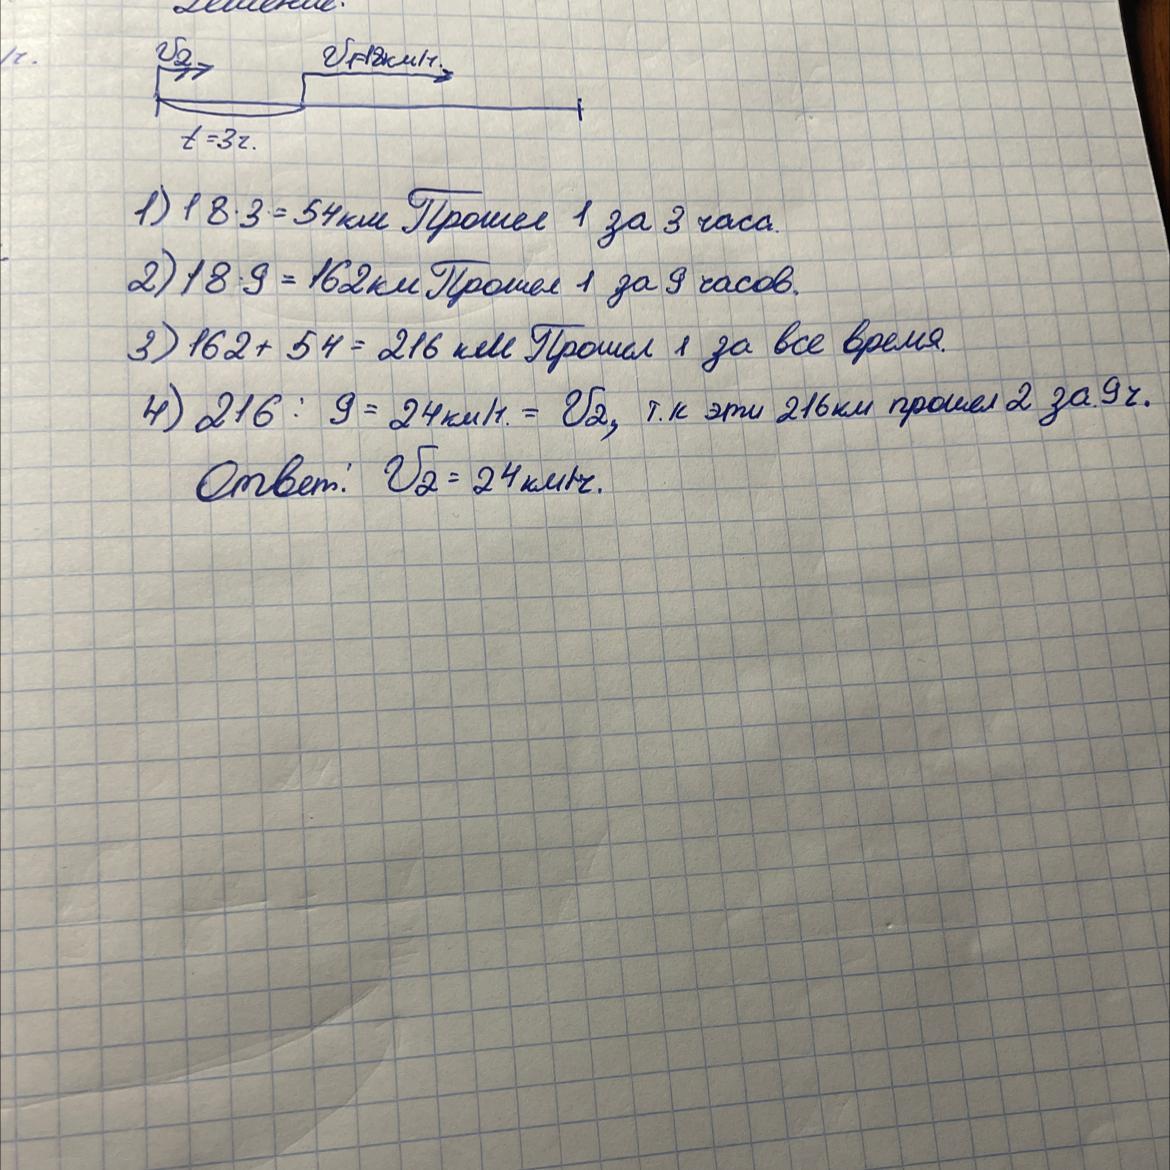 Решение:
V2 V1=18км/ч.
t=3ч.
1) 18·3=54км Прошел 1 за 3 часа.
2) 18·9=162км Прошел 1 за 9 часов.
3) 162+54=216 км Прошел 1 за все время.
4) 216:9=24км/ч.=V2, т.к эти 216км прошел 2 за 9ч.
Ответ: V2=24км/ч.